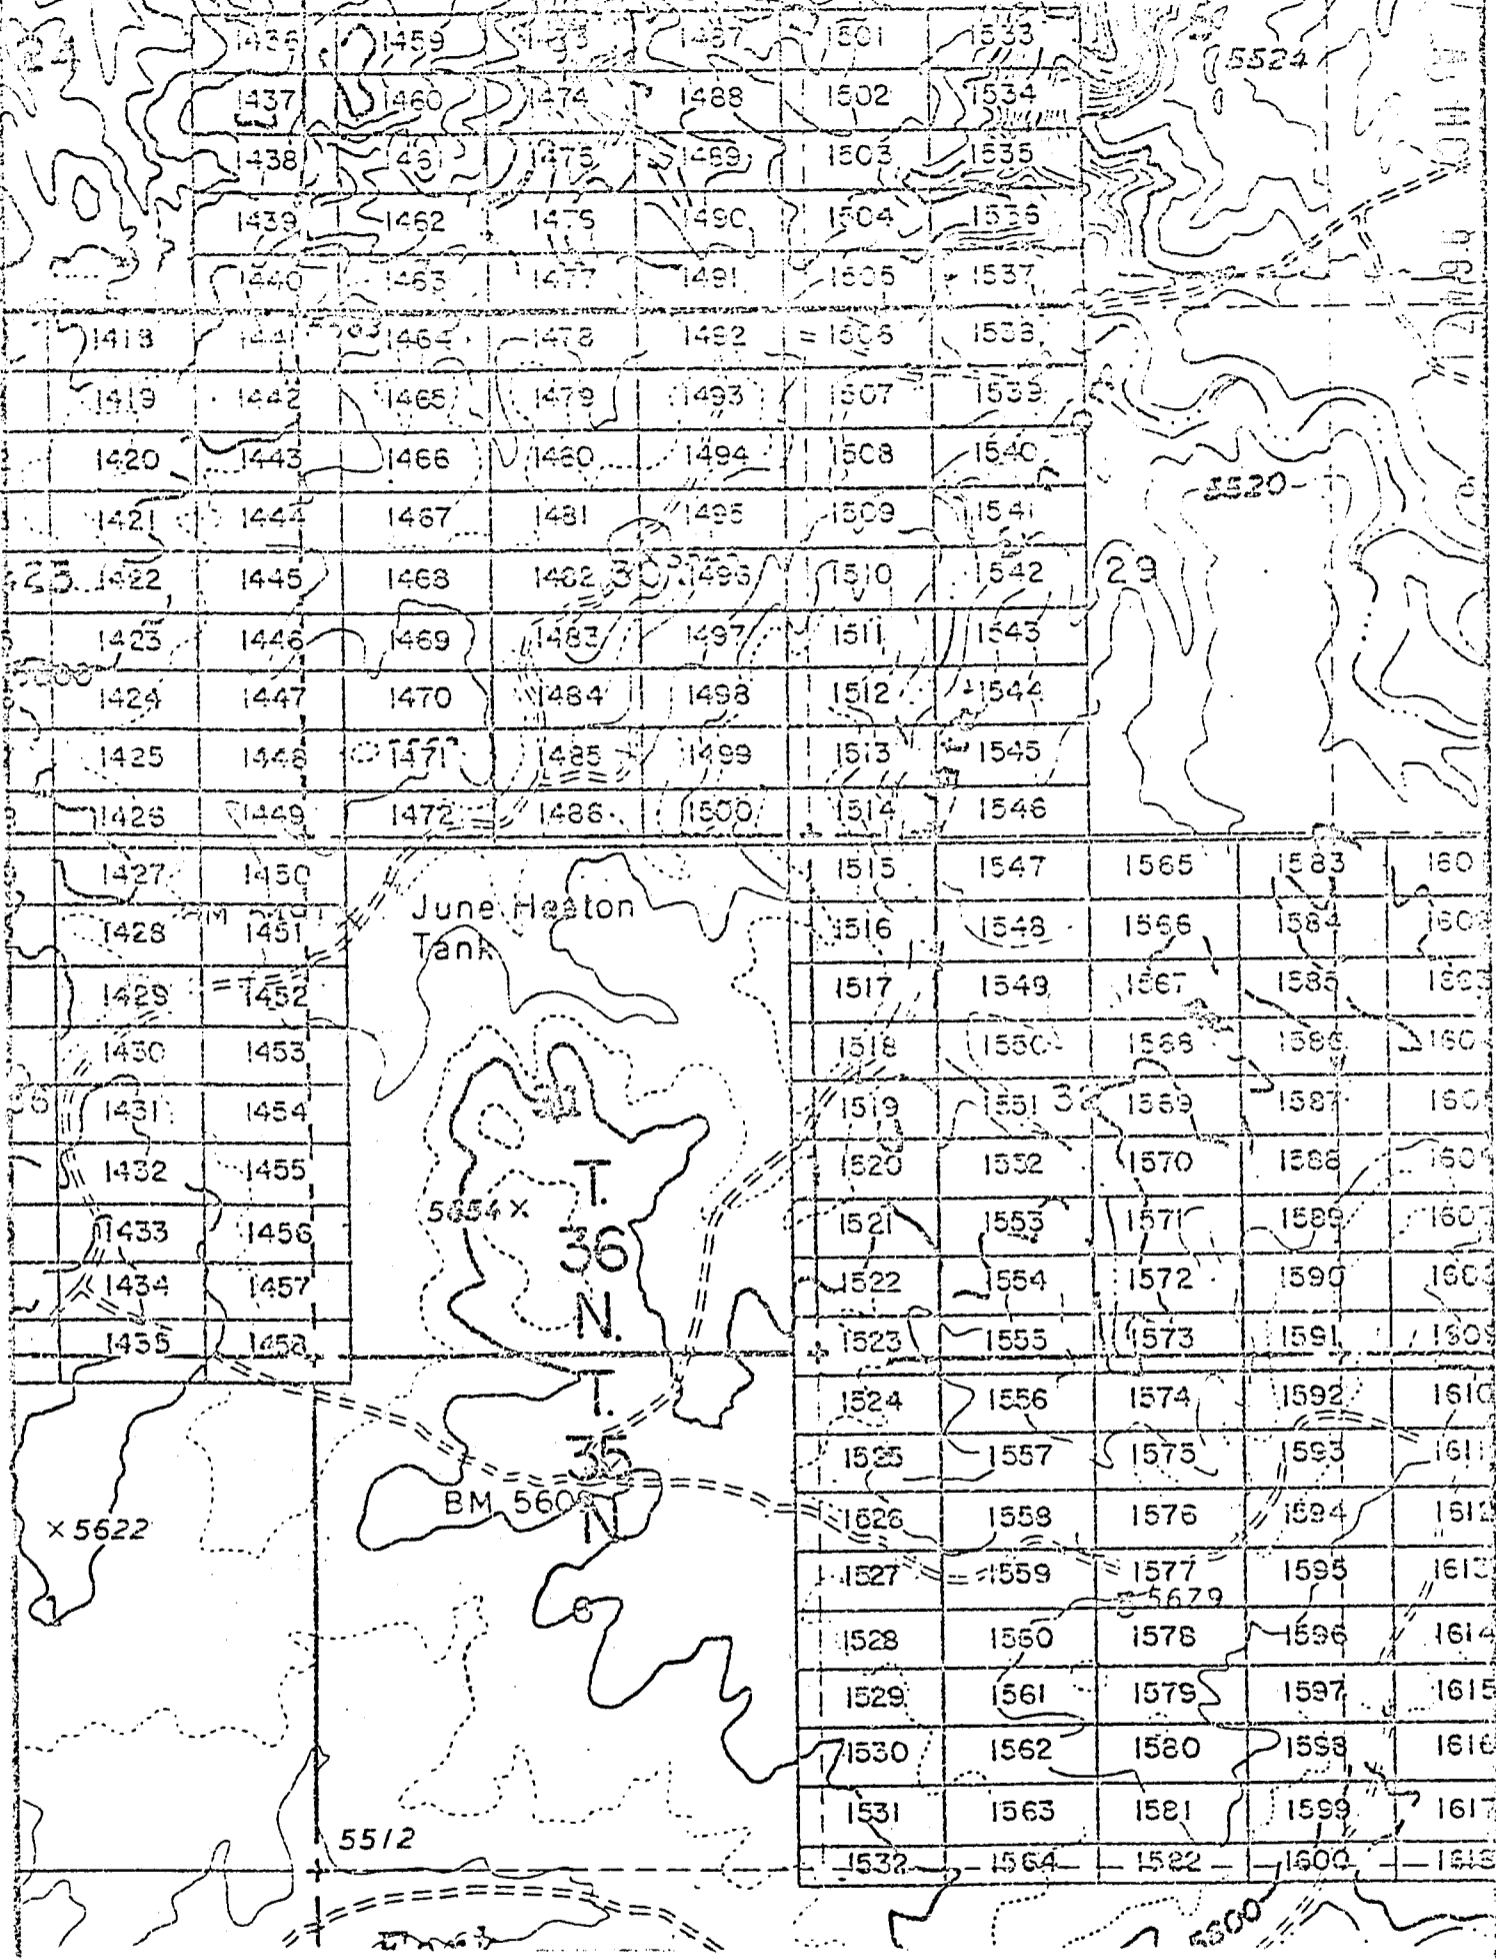 1436 1459 1487 1501 1533
5524
1437 1460 1474 1488 1502 1534
1438 1461 1475 1489 1503 1535
1439 1462 1476 1490 1504 1536
1440 1463 1477 1491 1505 1537
1418 1441 1464 1478 1492 1506 1538
1419 1442 1465 1479 1493 1507 1539
1420 1443 1466 1480 1494 1508 1540
5520
1421 1444 1467 1481 1495 1509 1541
1422 1445 1468 1482 30 1496 1510 1542 29
1423 1446 1469 1483 1497 1511 1543
1424 1447 1470 1484 1498 1512 1544
1425 1448 1471 1485 1499 1513 1545
1426 1449 1472 1486 1500 1514 1546
1427 1450 1515 1547 1565 1583 160
June Heaton
Tank
1428 1451 1516 1548 1566 1584 160
1429 1452 1517 1549 1567 1585
1430 1453 1518 1550 1568 1586 160
1431 1454 31 1519 1551 32 1569 1587 160
1432 1455 1520 1552 1570 1588 160
T.
36
N.
5654 ×
1433 1456 1521 1553 1571 1589 160
1434 1457 1522 1554 1572 1590 160
1435 1458 1523 1555 1573 1591 1609
T.
35
N
1524 1556 1574 1592 1610
1525 1557 1575 1593 1611
BM 560
× 5622
1526 1558 1576 1594 1612
1527 1559 1577 1595 1613
5679
6
1528 1560 1578 1596 1614
1529 1561 1579 1597 1615
1530 1562 1580 1598 1616
1531 1563 1581 1599 1617
5512
1532 1564 1582 1600 1618
5500